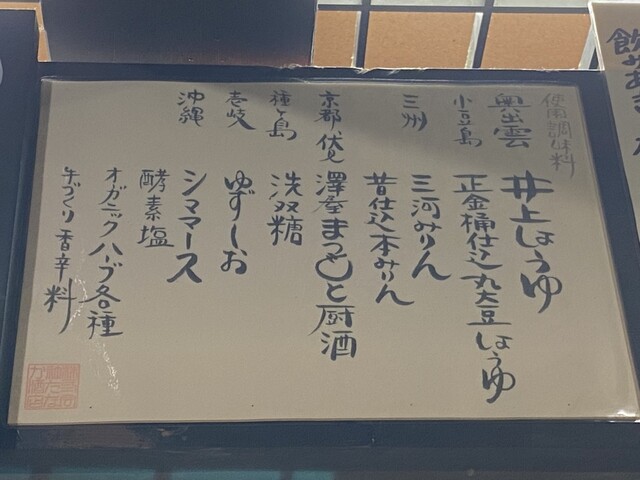 使用調味料
奥出雲 井上しょうゆ
小豆島 正金桶仕込丸大豆しょうゆ
三州 三河みりん
昔仕込本みりん
京都伏見 澤屋まつもと厨酒
種ヶ島 洗双糖
壱岐 ゆずしお
沖縄 シママース
酵素塩
オガニックハーブ各種
手づくり香辛料